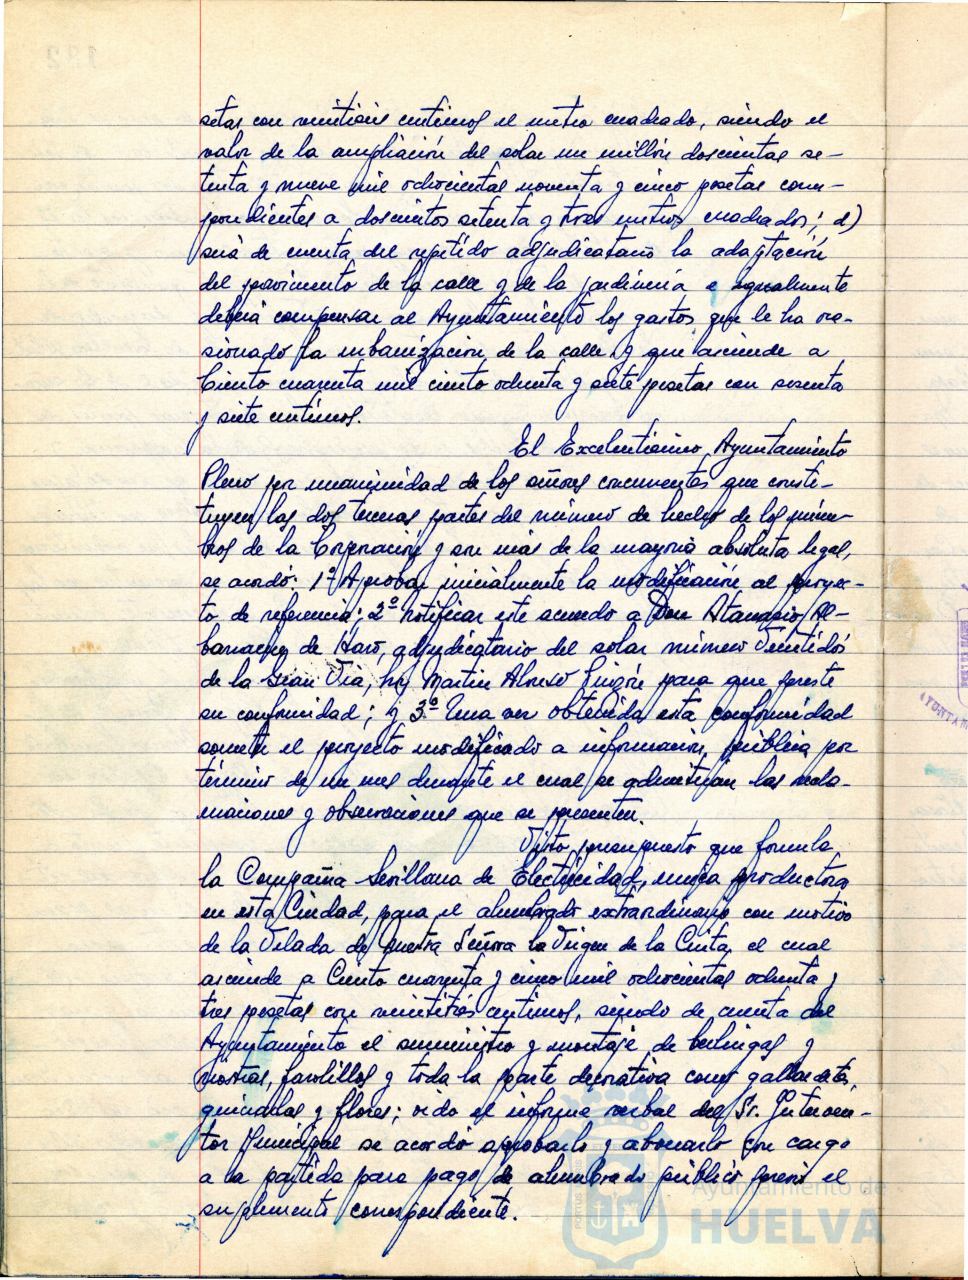 setas con veintiseis centimos el metro cuadrado, siendo el
valor de la ampliación del solar un millón doscientas se-
tenta y nueve mil ochocientas noventa y cinco pesetas corres-
pondientes a doscientos setenta y tres metros cuadrados; d)
será de cuenta del repetido adjudicatario la adaptación
del pavimento de la calle y de la jardineria e igualmente
deberá compensar al Ayuntamiento los gastos que le ha oca-
sionado la urbanización de la calle y que asciende a
Ciento cuarenta mil ciento ochenta y siete pesetas con sesenta
y siete centimos.
El Excelentisimo Ayuntamiento
Pleno por unanimidad de los señores concurrentes que consti-
tuyen las dos terceras partes del número de hecho de los miem-
bros de la Corporación y son más de la mayoria absoluta legal,
se acordó: 1º Aprobar inicialmente la modificación al proyec-
to de referencia; 2º notificar este acuerdo a Don Atanasio Al-
barracin de Haro, adjudicatario del solar número Veintidós
de la Gran Via, hoy Martin Alonso Pinzón para que preste
su conformidad; y 3º Una vez obtenida esta conformidad
someter el proyecto modificado a información pública por
término de un mes durante el cual se admitirán las recla-
maciones y observaciones que se presenten.
Visto presupuesto que formula
la Compañia Sevillana de Electricidad, unica productora
en esta Ciudad, para el alumbrado extraordinario con motivo
de la Velada de Nuestra Señora la Virgen de la Cinta, el cual
asciende a Ciento cuarenta y cinco mil ochocientas ochenta y
tres pesetas con veintitres centimos, siendo de cuenta del
Ayuntamiento el suministro y montaje de berlingas y
riostras, farolillos y toda la parte decorativa como gallardetes,
guirnaldas y flores; oido el informe verbal del Sr. Interven-
tor Municipal se acordó aprobarlo y abonarlo con cargo
a la partida para pago de alumbrado público previo el
suplemento correspondiente.
Ayuntamiento de
HUELVA